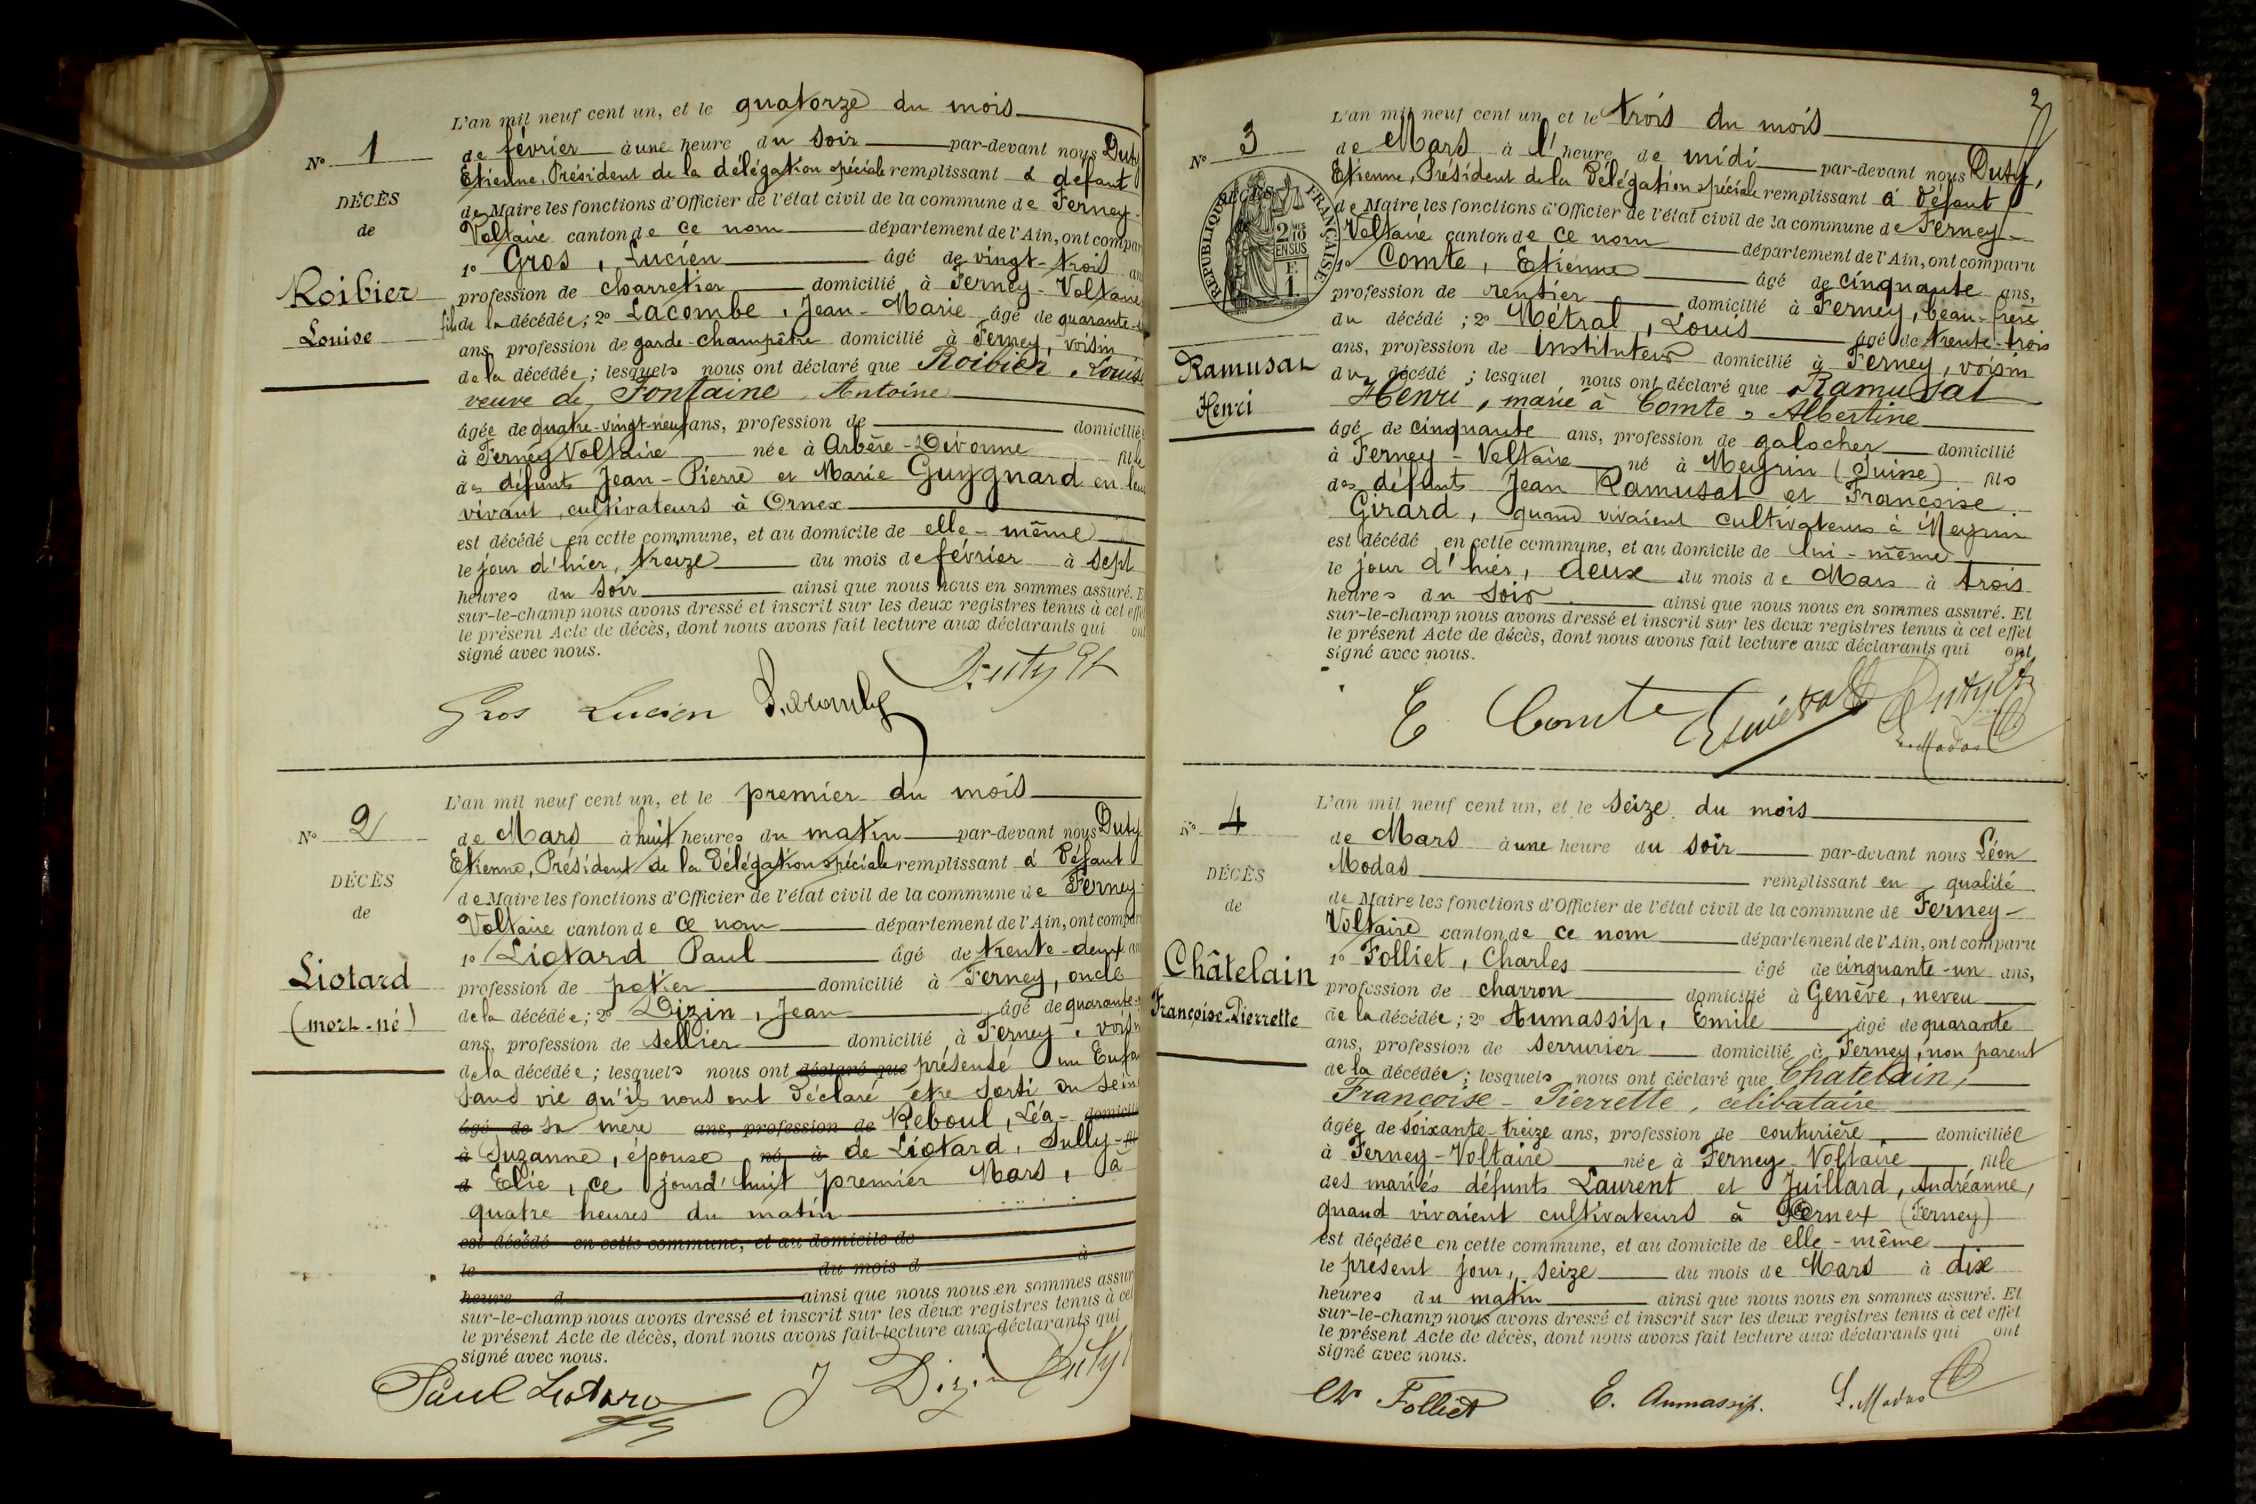 L'an mil neuf cent un, et le quatorze du mois
N° 1
de février à une heure du soir par-devant nous Duty
Etienne, Président de la délégation spéciale remplissant à défaut
DÉCÈS
de Maire les fonctions d'Officier de l'état civil de la commune de Ferney-
de
Voltaire canton de ce nom département de l'Ain, ont compar
1° Gros, Lucien âgé de vingt-trois an
Roibier
profession de charretier domicilié à Ferney-Voltaire
Louise
fils de la décédée; 2° Lacombe, Jean-Marie âgé de quarante-
ans, profession de garde-champêtre domicilié à Ferney, voisin
de la décédée; lesquels nous ont déclaré que Roibier, Louise
veuve de Fontaine Antoine
âgée de quatre-vingt-neuf ans, profession de domicilié
à Ferney Voltaire née à Arbère-Divonne fille
des défunts Jean-Pierre et Marie Guygnard en leur
vivant, cultivateurs à Ornex
est décédé en cette commune, et au domicile de elle-même
le jour d'hier, treize du mois de février à sept
heures du soir ainsi que nous nous en sommes assuré. E
sur-le-champ nous avons dressé et inscrit sur les deux registres tenus à cet effe
le présent Acte de décès, dont nous avons fait lecture aux déclarants qui ont
signé avec nous.
Gros Lucien Lacombe Duty Et
L'an mil neuf cent un, et le premier du mois
N° 2
de Mars à huit heures du matin par-devant nous Duty
Etienne, Président de la Délégation spéciale remplissant à défaut
DÉCÈS
de Maire les fonctions d'Officier de l'état civil de la commune de Ferney-
de
Voltaire canton de ce nom département de l'Ain, ont compar
1° Liotard Paul âgé de trente-deux an
Liotard
profession de potier domicilié à Ferney, oncle
(mort-né)
de la décédée; 2° Dizin, Jean âgé de quarante-
ans, profession de sellier domicilié à Ferney, voisin
de la décédée; lesquels nous ont déclaré que présenté un Enfa
sans vie qu'ils nous ont déclaré être sorti du sein
âgé de sa mère ans, profession de Reboul, Léa- domicilié
à Suzanne, épouse né à de Liotard, Sully- fil
d Elie, ce jourd'huit premier Mars, à
quatre heures du matin
est décédé en cette commune, et au domicile de
le du mois d à
heure d ainsi que nous nous en sommes assur
sur-le-champ nous avons dressé et inscrit sur les deux registres tenus à cet
le présent Acte de décès, dont nous avons fait lecture aux déclarants qui
signé avec nous.
Paul Liotard J Dizin Duty
2
L'an mil neuf cent un, et le trois du mois
N° 3
de Mars à l'heure de midi par-devant nous Duty,
Etienne, Président de la Délégation spéciale remplissant à défaut
DÉCÈS
RÉPUBLIQUE FRANÇAISE
2/10 EN SUS
F 1.
de Maire les fonctions d'Officier de l'état civil de la commune de Ferney-
de
Voltaire canton de ce nom département de l'Ain, ont comparu
1° Comte, Etienne âgé de cinquante ans,
profession de rentier domicilié à Ferney, beau-frère
du décédé; 2° Métral, Louis âgé de trente-trois
Ramusat
ans, profession de Instituteur domicilié à Ferney, voisin
du décédé; lesquel nous ont déclaré que Ramusat
Henri
Henri, marié à Comte, Albertine
âgé de cinquante ans, profession de galocher domicilié
à Ferney-Voltaire né à Meyrin (Suisse) fils
des défunts Jean Ramusat et Françoise
Girard, quand vivaient cultivateurs à Meyrin
est décédé en cette commune, et au domicile de lui-même
le jour d'hier, deux du mois de Mars à trois
heures du soir ainsi que nous nous en sommes assuré. Et
sur-le-champ nous avons dressé et inscrit sur les deux registres tenus à cet effet
le présent Acte de décès, dont nous avons fait lecture aux déclarants qui ont
signé avec nous.
E Comte Duty Et
L. Modas
L'an mil neuf cent un, et le seize du mois
N° 4
de Mars à une heure du soir par-devant nous Léon
DÉCÈS
Modas remplissant en qualité
de
de Maire les fonctions d'Officier de l'état civil de la commune de Ferney-
Voltaire canton de ce nom département de l'Ain, ont comparu
Châtelain
1° Folliet, Charles âgé de cinquante-un ans,
profession de charron domicilié à Genève, neveu
Françoise-Pierrette
de la décédée; 2° Aumassip, Emile âgé de quarante
ans, profession de serrurier domicilié à Ferney, non parent
de la décédée; lesquels nous ont déclaré que Chatelain,
Françoise-Pierrette, célibataire
âgée de soixante-treize ans, profession de couturière domiciliée
à Ferney-Voltaire née à Ferney Voltaire fille
des mariés défunts Laurent et Juillard, Andréanne,
quand vivaient cultivateurs à Fernex (Ferney)
est décédée en cette commune, et au domicile de elle-même
le présent jour, seize du mois de Mars à dix
heures du matin ainsi que nous nous en sommes assuré. Et
sur-le-champ nous avons dressé et inscrit sur les deux registres tenus à cet effet
le présent Acte de décès, dont nous avons fait lecture aux déclarants qui ont
signé avec nous.
Ch Folliet E. Aumassip. L. Modas